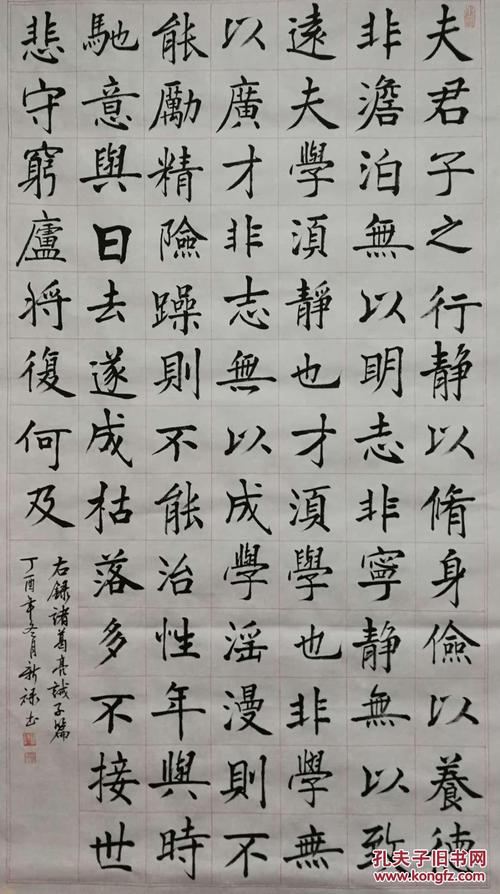 夫君子之行靜以脩身儉以養德
非澹泊無以明志非寧靜無以致
遠夫學湏靜也才湏學也非學無
以廣才非志無以成學滛漫則不
能勵精險躁則不能治性年與時
馳意與日去遂成枯落多不接世
悲守窮廬將復何及
右録諸葛亮誡子篇
丁酉年冬月新祿书
孔夫子旧书网
www.kongfz.com